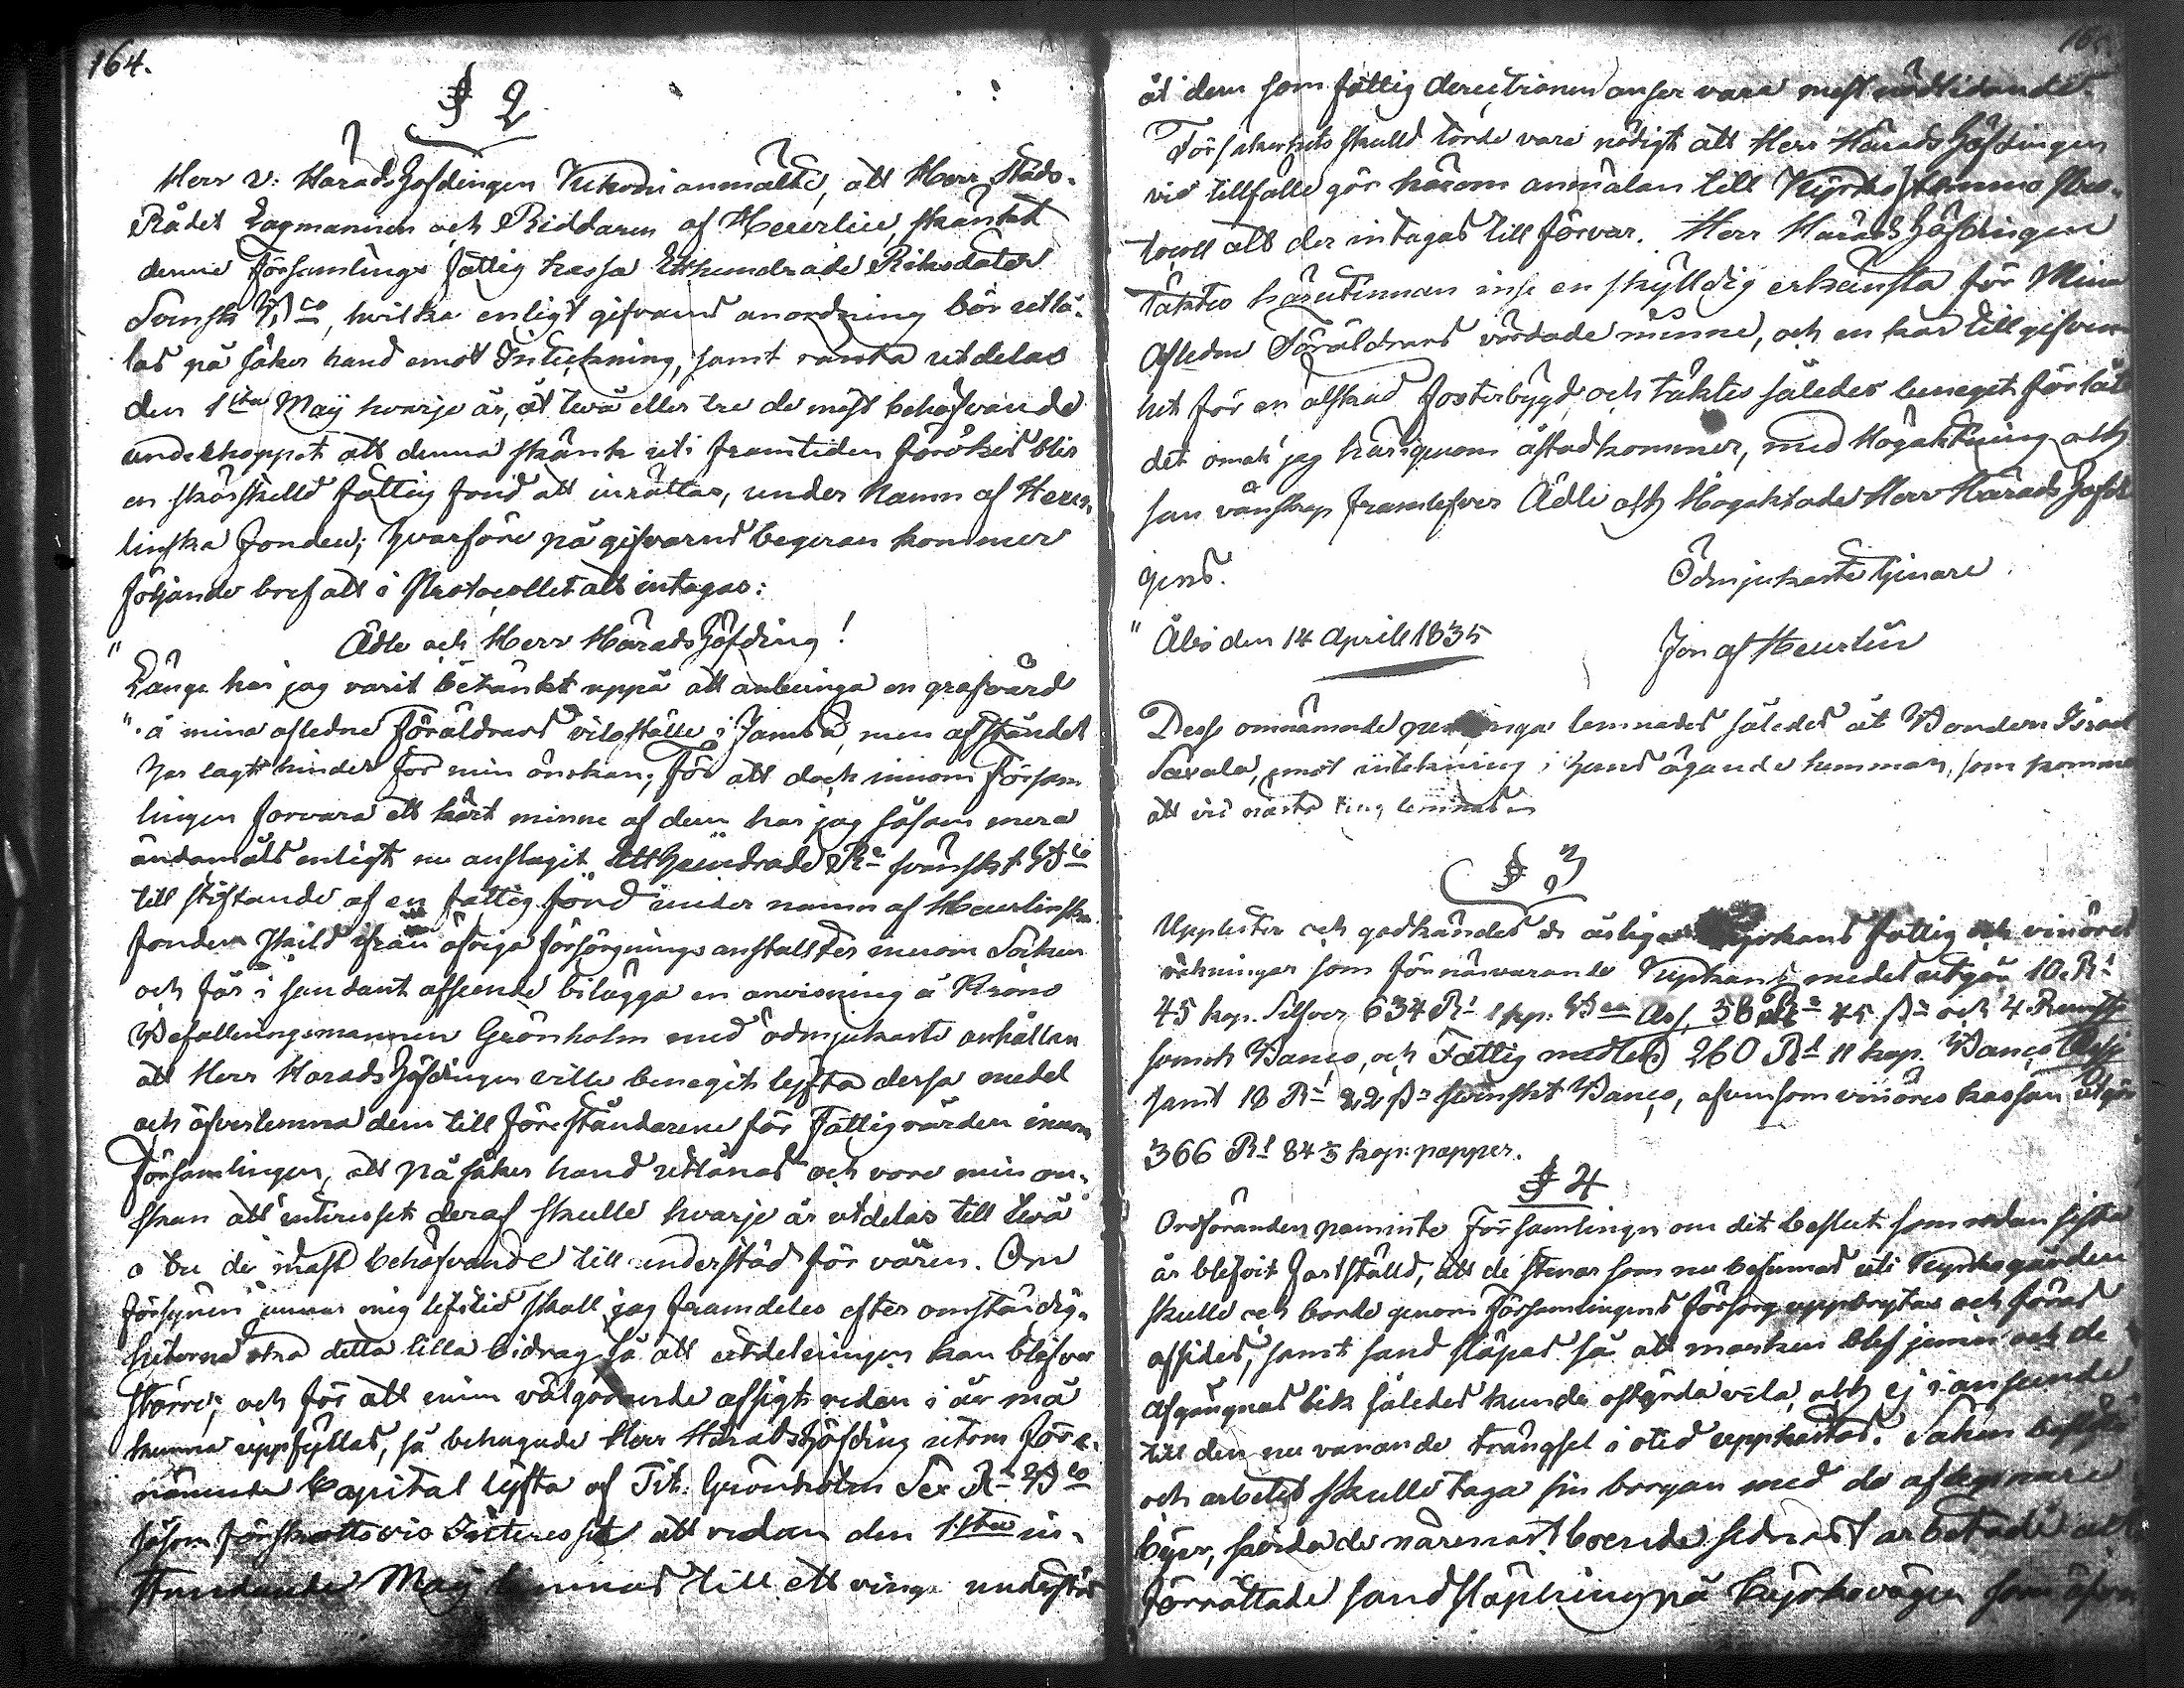 164.
§ 2
Herr v: HäradsHöfdingen anmälte, att Herr Stads-
Rådet Lagmannen och Riddaren af Heurlin, skänkt
denne Församlings fattig kassa Etthundrade Riksdaler
Svensk B:co, hvilka enligt gifvarens anordning bör utlå-
las på säker hand emot Inteckning, samt ränta utdelas
den 1sta Maÿ hvarje år, åt två eller tre de mest behöfvande
under hoppet att denna skänk uti framtiden förökes blir
en särskild fattig fond att inrättas, under Namn af Heur-
linska fonden; hvarföre på gifvarens begäran kommer
följande bref att i Protocollet att intagas:
" Ädle och Herr HäradsHöfding!
Länge har jag varit betänkt uppå att anbringa en grafvård
" å mina aflidne Föräldrars viloställe i Jamsä, men afståndet
har lagt hinder för min önskan; För att dock innom Försam
lingen förvara ett kärt minne af dem har jag såsom mera
ändamåls enligt nu anslagit Etthundrade R:d svenskt B:co
till stiftande af en fattig fond under namn af Heurlinska
fonden skild ifrån öfriga försörgnings anstallter innom Socken
och får i sandant afseende bilägga en anvisning å Krono
Befallningsmannen Grönholm med ödmjukaste anhållan
att Herr HäradsHöfdingen ville benägit lyfta dessa medel
och öfverlemna dem till Föreståndarene för Fattigvården innom
Församlingen, att på säker hand utlånas och vore min ön-
skan att interesset deraf skulle hvarje år utdelas till två
a tre de mäst behöfvande till understöd för våren. Om
försynen unnar mig lifstid skall jag framdeles efter omständig-
heterna öka detta lilla bidrag så att utdelningen kan blifva
större; och för att min välgörande afsigt redan i år må
kunna uppfyllas, så behagade Herr HäradsHöfding utom före-
nämnda Capital lyfta af Tit. Grönholm Sex R:d B:co
såsom förskottsvis Interesse att redan den 1sta in-
stundande Maÿ lemnas till ett ringa understöd
åt dem som fattig Directionen anser vara mest nödlidande.
För säkerhets skulld torde vara nödigt att Herr HäradsHöfdingen
vid tillfälle gör härom anmälan till Kyrkostämmo Pro-
tocoll att der intagas till förvar. Herr HäradsHöfdingen
täktes härutinnan inse en skylldig erkänsla för Mina
Afledne Föräldrars vördade minne, och en kär tillgifven
het för en älskad fosterbygd och täktes således beneget förlåt
det omak jag härigenom åstadkommer, med Högaktning och
san vänskap framlefver Ädle och Högaktade Herr HäradsHöfd
gens.
Ödmjukaste tjenare.
" Åbo den 14 April 1835
Jon af Heurlin
Dess omnämnde penninga lemnades således åt Bonden Israel
Savala, emot intekning i hans ägande hemman, som kommer
att vid nästa ting lemnas
§ 3
Upplästes och godkändes de årliga Kyrkans fattig och vinöres
räkningar som förnärvarande Kyrkans medel utgör 10 R:l
45 kop. Silfver 634 R:l 1 kop. B:co Ass. 58 R:d 45 s:r och 4 Runst
svensk Banco, och Fattig medlen 260 R:l 11 kop. Banco Ass
samt 18 R:d 22 s:r svenskt Banco, afvensom vinöres kassan utgör
366 R:l 84 3/7 kop. papper.
§ 4
Ordföranden paminte Församlingen om det beslut som redan sista
år blefvit fastställd, att de stenar som nu befinnas uti Kyrkogården
skulle och borde genom Församlingens försorg uppbrytas och föras
afsides, samt sand släpas så att marken blef jämn och de
afgångnas lik således kunde ostörda vila, och ej i anseende
till den nu varande trängsel i otid uppkastas. Saken besluts
och arbetet skulle taga sin borgan med de aflägsnare
byer, sedande närmast boende sednast arbetade att
förrättade sandsläpning på kyrkovägen som äfven